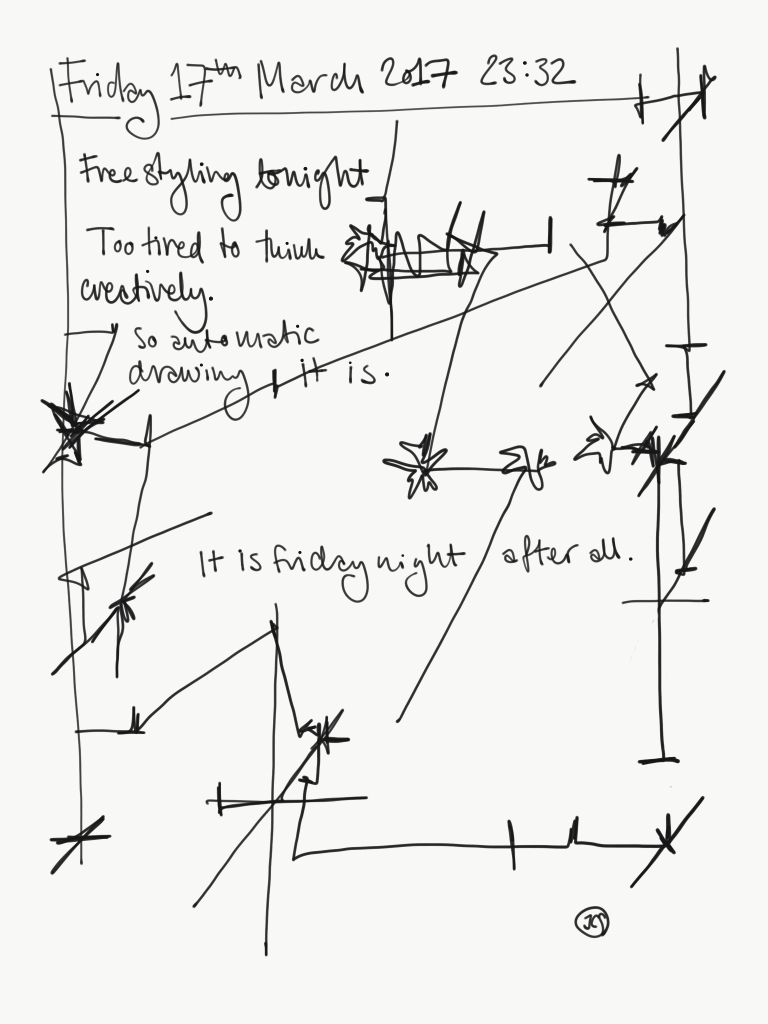 Friday 17th March 2017 23:32
Freestyling tonight
Too tired to think
creatively.
So automatic
drawing it is.
It is friday night after all.